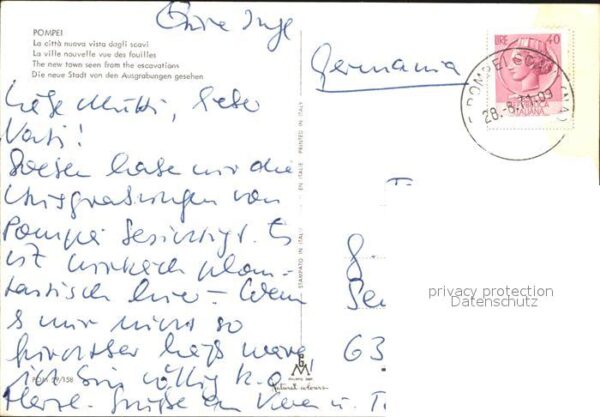 Eure Inge
POMPEI
La città nuova vista dagli scavi
La ville nouvelle vue des fouilles
The new town seen from the escavations
Die neue Stadt von den Ausgrabungen gesehen
Germania
LIRE 40
ITALIANA
POMPEI SCAVI (NA)
28.-8.71.09
Liebe Mutti, lieber
Vati!
Soeben habe mir die
Ausgrabungen von
Pompei besichtigt. Es
ist wirklich phan-
tastisch hier - Wenn
es mir nicht so
furchtbar heiß wäre
ich bin völlig k.o
Herzl. Grüße an Vera u. T
STAMPATO IN ITALIA
EN ITALIE
PRINTED IN ITALY
63
privacy protection
Datenschutz
natural colours